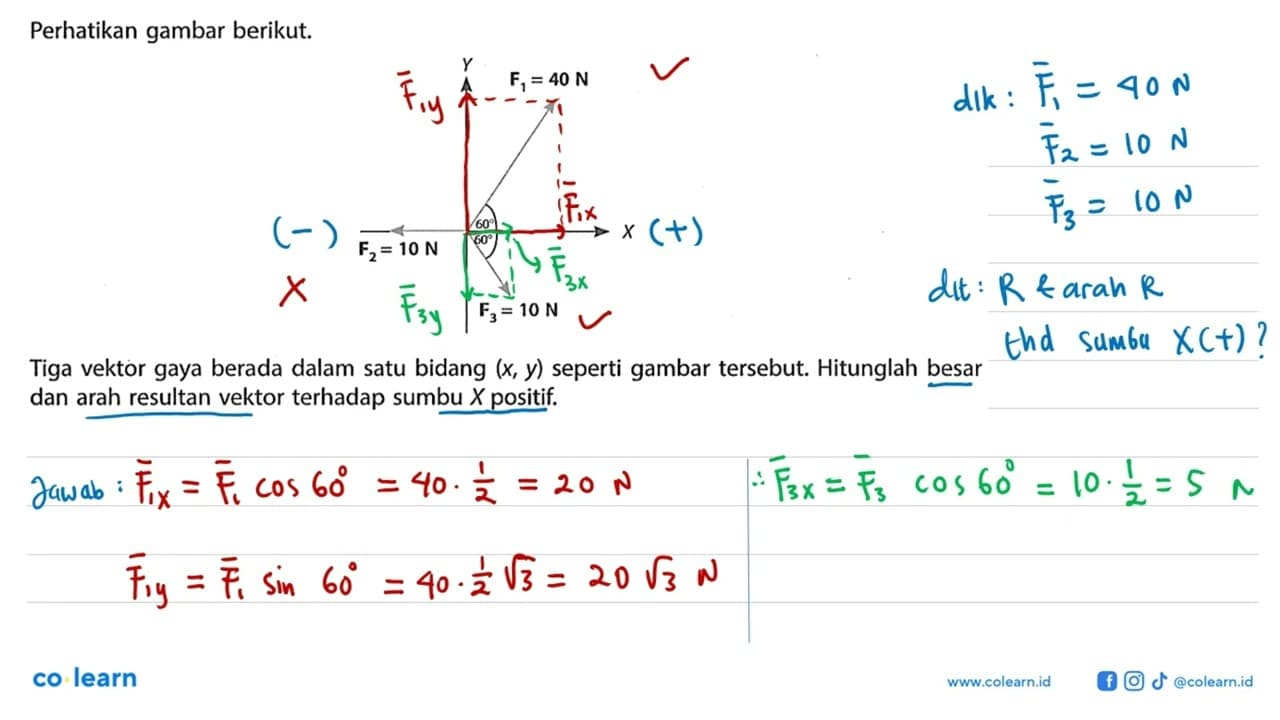 Perhatikan gambar berikut.
Y
F̄₁y
F₁ = 40 N
✓
F̄₁x
60°
60°
(-)
X (+)
F₂ = 10 N
F̄₃x
X
F̄₃y
F₃ = 10 N
✓
dik : F̄₁ = 40 N
F̄₂ = 10 N
F̄₃ = 10 N
dit : R & arah R
thd sumbu X(+)?
Tiga vektor gaya berada dalam satu bidang (x, y) seperti gambar tersebut. Hitunglah besar
dan arah resultan vektor terhadap sumbu X positif.
Jawab : F̄₁x = F̄₁ cos 60° = 40 · 1/2 = 20 N
F̄₁y = F̄₁ sin 60° = 40 · 1/2 √3 = 20 √3 N
∴ F̄₃x = F̄₃ cos 60° = 10 · 1/2 = 5 N
co learn
www.colearn.id
@colearn.id